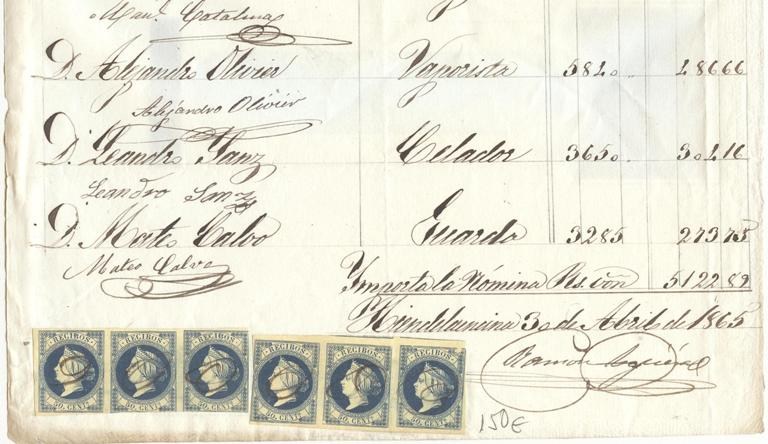 Man.l Catalina
D. Alejandro Olivier Vaporista 5840 .. 486 66
Alejandro Olivier
D. Leandro Sanz Celador 3650 .. 304 16
Leandro Sanz
D. Mateo Calvo Guarda 3285 273 75
Mateo Calvo
Importa la Nómina Rs. von 5122 89
Hiendelaencina 30 de Abril de 1865
Ramon
RECIBOS RECIBOS RECIBOS RECIBOS RECIBOS RECIBOS
50 CENTS 50 CENTS 50 CENTS 50 CENTS 50 CENTS 50 CENTS
150€